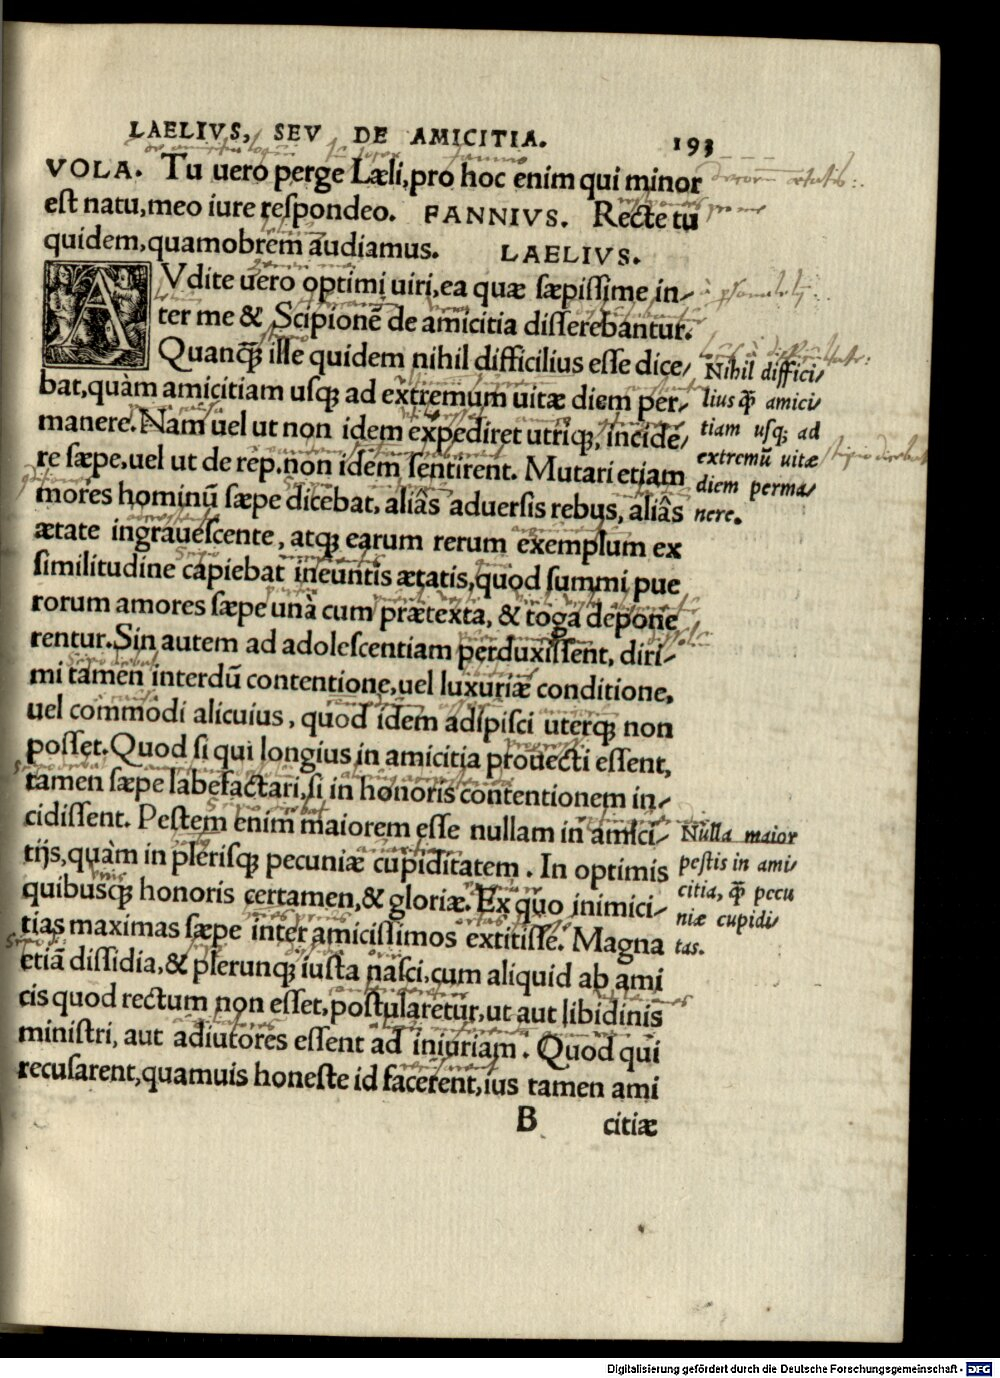 LAELIVS, SEV DE AMICITIA. 193
VOLA. Tu uero perge Læli, pro hoc enim qui minor
est natu, meo iure respondeo. FANNIVS. Recte tu
quidem, quamobrem audiamus. LAELIVS.
AVdite uero optimi uiri, ea quæ sæpissime in-
ter me & Scipionē de amicitia disserebantur.
Quanꝙ̄ ille quidem nihil difficilius esse dice-
bat, quàm amicitiam usꝗ ad extremum uitæ diem per-
manere. Nam uel ut non idem expediret utriꝗ, incide-
re sæpe, uel ut de rep. non idem sentirent. Mutari etiam
mores hominū sæpe dicebat, aliâs aduersis rebus, aliâs
ætate ingrauescente, atꝗ earum rerum exemplum ex
similitudine capiebat ineuntis ætatis, quod summi pue
rorum amores sæpe unà cum prætexta, & toga depone
rentur. Sin autem ad adolescentiam perduxissent, diri-
mi tamen interdū contentione, uel luxuriæ conditione,
uel commodi alicuius, quod idem adipisci uterꝗ non
posset. Quod si qui longius in amicitia prouecti essent,
tamen sæpe labefactari, si in honoris contentionem in-
cidissent. Pestem enim maiorem esse nullam in amici-
tijs, quàm in plerisꝗ pecuniæ cupiditatem. In optimis
quibusꝗ honoris certamen, & gloriæ. Ex quo inimici-
tias maximas sæpe inter amicissimos extitisse. Magna
etiā dissidia, & plerunꝗ iusta nasci, cum aliquid ab ami
cis quod rectum non esset, postularetur, ut aut libidinis
ministri, aut adiutores essent ad iniuriam. Quod qui
recusarent, quamuis honeste id facerent, ius tamen ami
B citiæ
Nihil diffici-
lius ꝙ̄ amici-
tiam usꝗ ad
extremū uitæ
diem perma-
nere.
Nulla maior
pestis in ami-
citia, ꝙ̄ pecu
niæ cupidi-
tas.
Digitalisierung gefördert durch die Deutsche Forschungsgemeinschaft - DFG